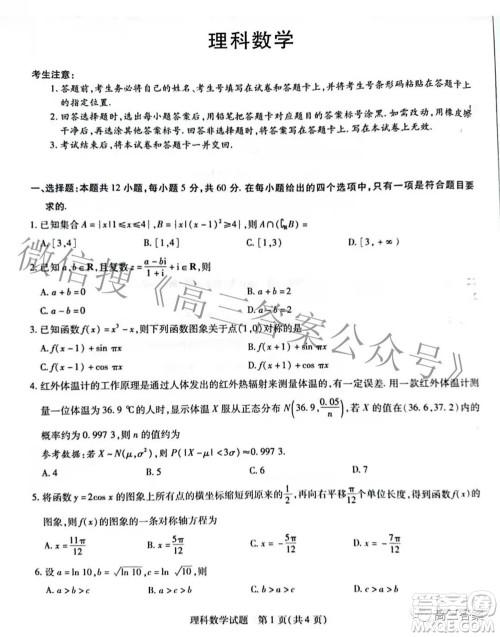 理科数学
考生注意:
1. 答题前,考生务必将自己的姓名、考生号填写在试卷和答题卡上,并将考生号条形码粘贴在答题卡上的指定位置.
2. 回答选择题时,选出每小题答案后,用铅笔把答题卡对应题目的答案标号涂黑.如需改动,用橡皮擦干净后,再选涂其他答案标号.回答非选择题时,将答案写在答题卡上.写在本试卷上无效.
3. 考试结束后,将本试卷和答题卡一并交回.
一、选择题:本题共 12 小题,每小题 5 分,共 60 分.在每小题给出的四个选项中,只有一项是符合题目要求的.
1. 已知集合 A={x|1≤x≤4},B={x|(x-1)²≥4},则A∩(∁ᵣB)=
A. [3,4] B. [1,4] C. [1,3) D. [3,+∞)
2. 已知 a,b∈R,且复数 z=(a-bi)/(1+i)+i∈R,则
A. a+b=0 B. a-b=0 C. a+b=2
3. 已知函数 f(x)=x³-x,则下列函数图象关于点(1,0)对称的是
A. f(x-1)+sin πx B. f(x+1)+sin πx
C. f(x-1)+cos πx D. f(x+1)+cos πx
4. 红外体温计的工作原理是通过人体发出的红外热辐射来测量体温的,有一定误差.用一款红外体温计测量一位体温为 36.9 ℃的人时,显示体温 X 服从正态分布 N(36.9, 0.05/n),若 X 的值在(36.6,37.2)内的概率约为 0.997 3,则 n 的值约为
参考数据:若 X~N(μ,σ²),则 P(|X-μ|<3σ)≈0.997 3.
A. 4 B. 5 C. 6 D. 7
5. 将函数 y=2cos x 的图象上所有点的横坐标缩短到原来的 1/2,再向右平移 π/12 个单位长度,得到函数 f(x)的图象,则 f(x)的图象的一条对称轴方程为
A. x=11π/12 B. x=5π/12 C. x=7π/12 D. x=π/12
6. 设 a=ln 10,b=√(ln 10),c=ln √10,则
A. a>c>b B. a>b>c C. b>a>c
理科数学试题 第 1 页(共 4 页)
微信搜《高三答案公众号》
高三答案